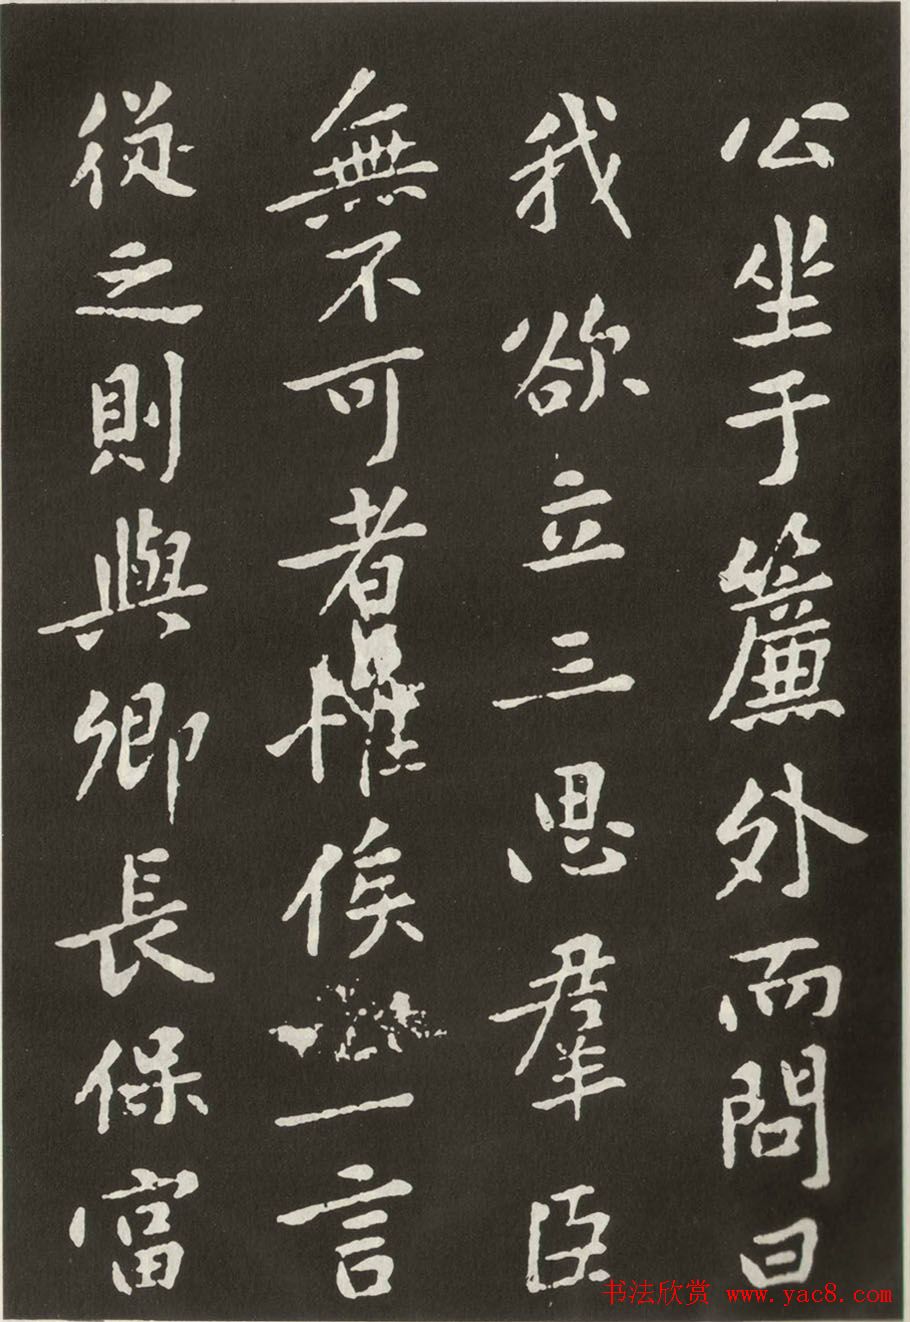 公坐于簾外而問曰
我欲立三思羣臣
無不可者惟俟一言
從之則與卿長保富
书法欣赏 www.yac8.com